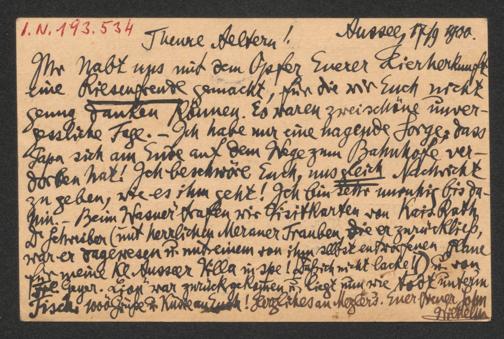 I.N. 193.534
Theure Aeltern! Aussee, 17/9 1900.
Ihr habt uns mit dem Opfer Euerer Hierherkunft
eine Riesenfreude gemacht, für die wir Euch nicht
genug danken können. Es waren zwei schöne unver-
gessliche Tage. – Ich habe nur eine nagende Sorge, dass
Papa sich am Ende auf dem Wege zum Bahnhofe ver-
dorben hat! Ich beschwöre Euch, uns gleich Nachricht
zu geben, wie es ihm geht! Ich bin sehr unruhig bis da-
hin. – Beim Wasner trafen wir Visitkarten von Kais. Rath
Dr Schreiber (mit herrlichen Meraner Trauben, die er zurückließ,
war er dagewesen u. mit einem von ihm selbst entworfenen Plane
für meine kl. Ausseer Villa in spe! (das ich nicht lache!!) u. von
war zurückgekommen u. liegt nun wie todt unterm
Tisch. 1000 Grüße u. Küsse an Euch! Herzliches an Euer treuer Sohn
Wilhelm